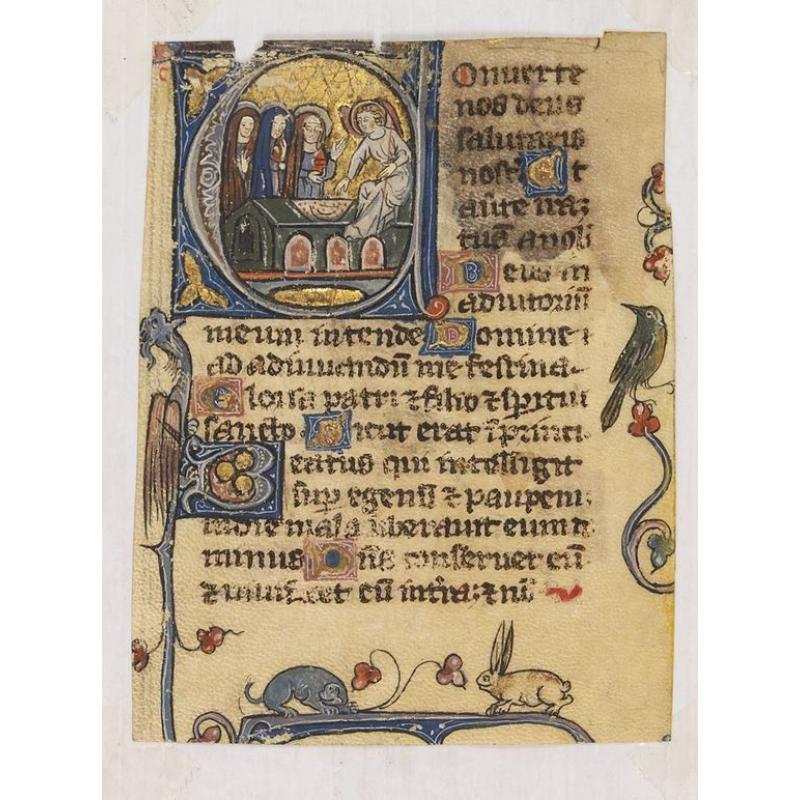 Conuerte
nos deus
salutaris
nosť Et
auťe iraȝ
tuã a nob
Deus in
adiutoriũ
meum intende Domine
ad adiuuandũ me festina
Gloria patri ⁊ filio ⁊ spiritui
sancto Sicut erat ĩ princi
Beatus qui intelligit
sup egenũ ⁊ paupem
in die mala liberauit eum
minus Dñs conseruet eũ
⁊ uiuificet eũ